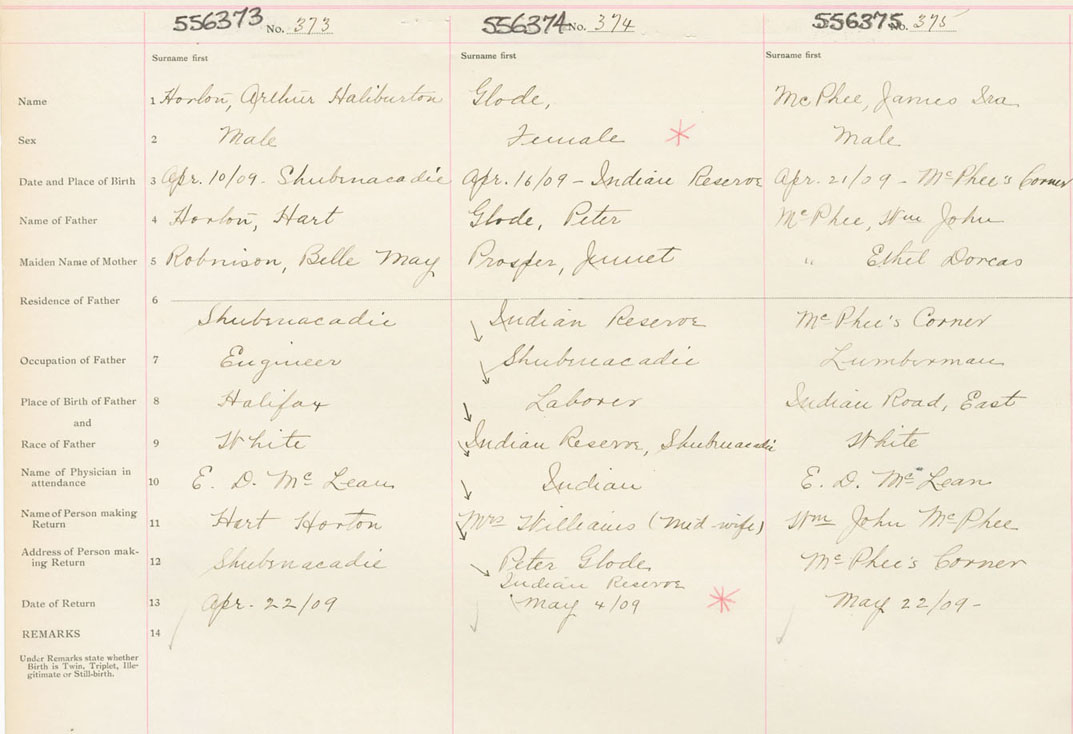 556373 No. 373 556374 No. 374 556375 No. 375
Surname first Surname first Surname first
Name 1 Horton, Arthur Haliburton Glode, McPhee, James Ira
Sex 2 Male Female * Male
Date and Place of Birth 3 Apr. 10/09 - Shubenacadie Apr. 16/09 - Indian Reserve Apr. 21/09 - McPhee's Corner
Name of Father 4 Horton, Hart Glode, Peter McPhee, Wm John
Maiden Name of Mother 5 Robinson, Belle May Prosper, " Ethel Dorcas
Residence of Father 6
Shubenacadie Indian Reserve McPhee's Corner
Occupation of Father 7 Engineer Shubenacadie Lumberman
Place of Birth of Father 8 Halifax Laborer Indian Road, East
and
Race of Father 9 White Indian Reserve, Shubenacadie White
Name of Physician in
attendance 10 E. D. McLean Indian E. D. McLean
Name of Person making
Return 11 Hart Horton Mrs Williams (Mid-wife) Wm John McPhee
Address of Person mak-
ing Return 12 Shubenacadie Peter Glode McPhee's Corner
Indian Reserve
Date of Return 13 Apr. 22/09 May 4/09 * May 22/09 -
REMARKS 14
Under Remarks state whether
Birth is Twin, Triplet, Ille-
gitimate or Still-birth.